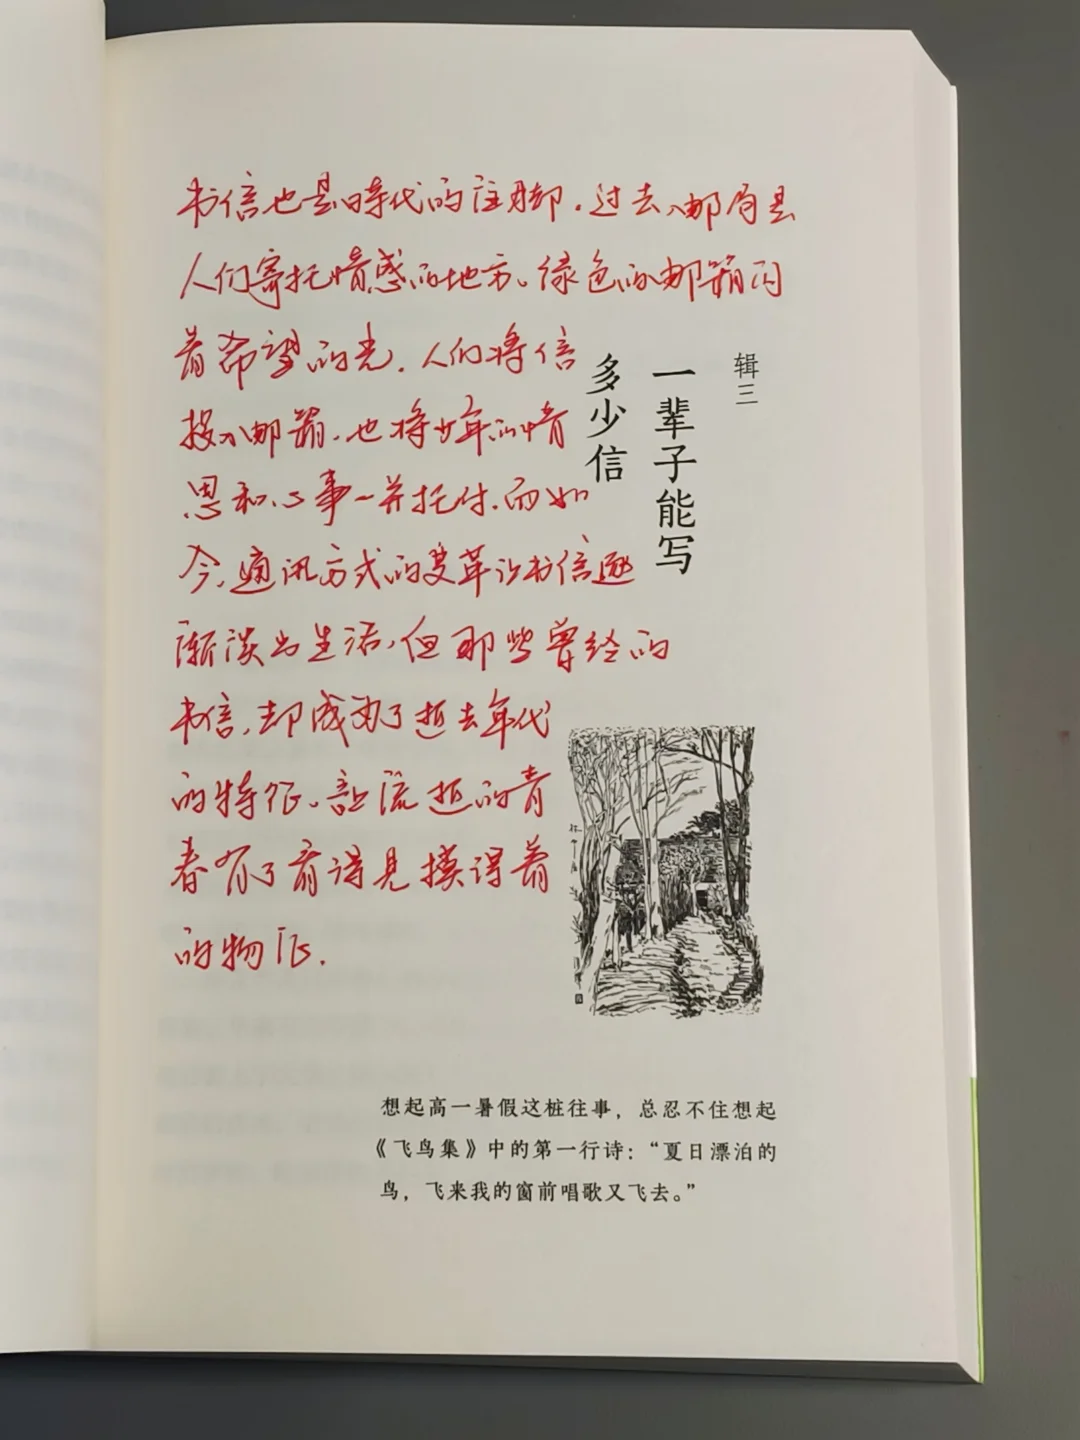 书信也是时代的注脚。过去，邮局是
人们寄托情感的地方。绿色的邮箱闪
着希望的光。人们将信
投入邮箱，也将少年的情
思和心事一并托付。而如
今，通讯方式的变革让书信逐
渐淡出生活，但那些曾经的
书信，却成为了逝去年代
的特征。让流逝的青
春有了看得见摸得着
的物证。
辑三
一辈子能写
多少信
想起高一暑假这桩往事，总忍不住想起
《飞鸟集》中的第一行诗：“夏日漂泊的
鸟，飞来我的窗前唱歌又飞去。”